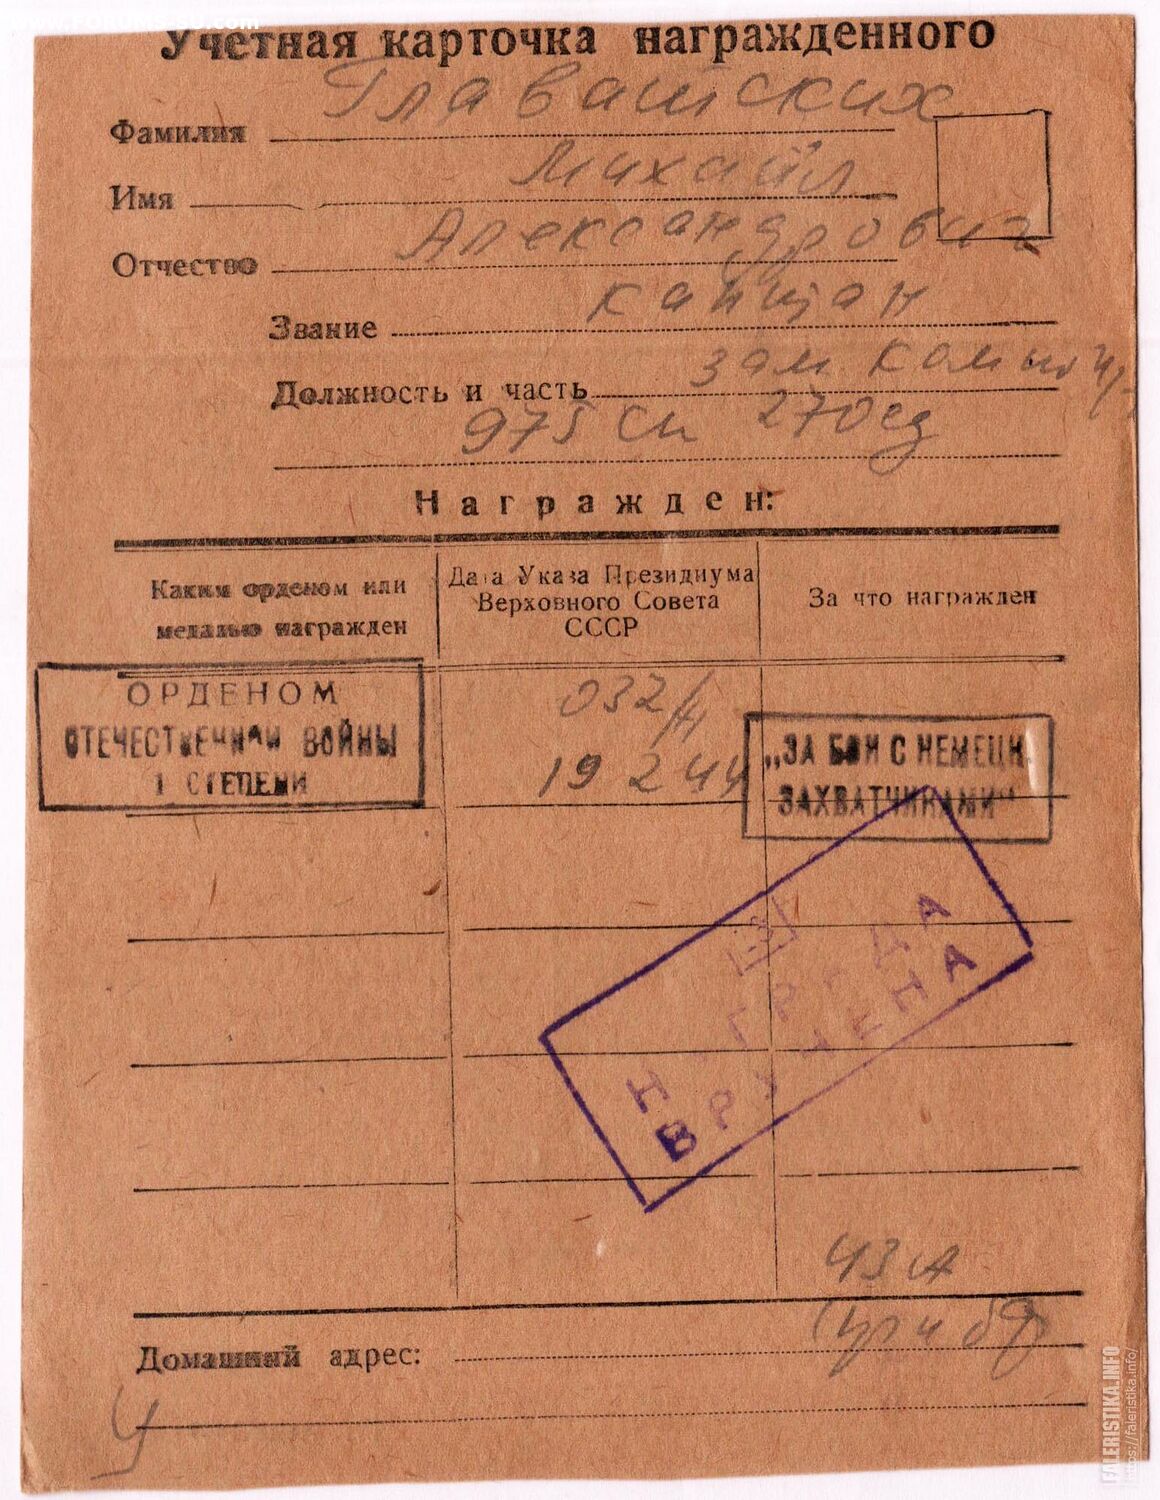 www.FORUMS-SU.com
Учетная карточка награжденного
Фамилия Главатских
Имя Михаил
Отчество Александрович
Звание капитан
Должность и часть зам. ком
975 сп 270 сд
Награжден:
Каким орденом или медалью награжден
Дата Указа Президиума Верховного Совета СССР
За что награжден
ОРДЕНОМ
ОТЕЧЕСТВЕННОЙ ВОЙНЫ
1 СТЕПЕНИ
032/Н
19 2 44
„ЗА БОИ С НЕМЕЦК.
ЗАХВАТЧИКАМИ"
НАГРАДА
ВРУЧЕНА
43 А
Домашний адрес:
У
FALERISTIKA.INFO
https://faleristika.info/